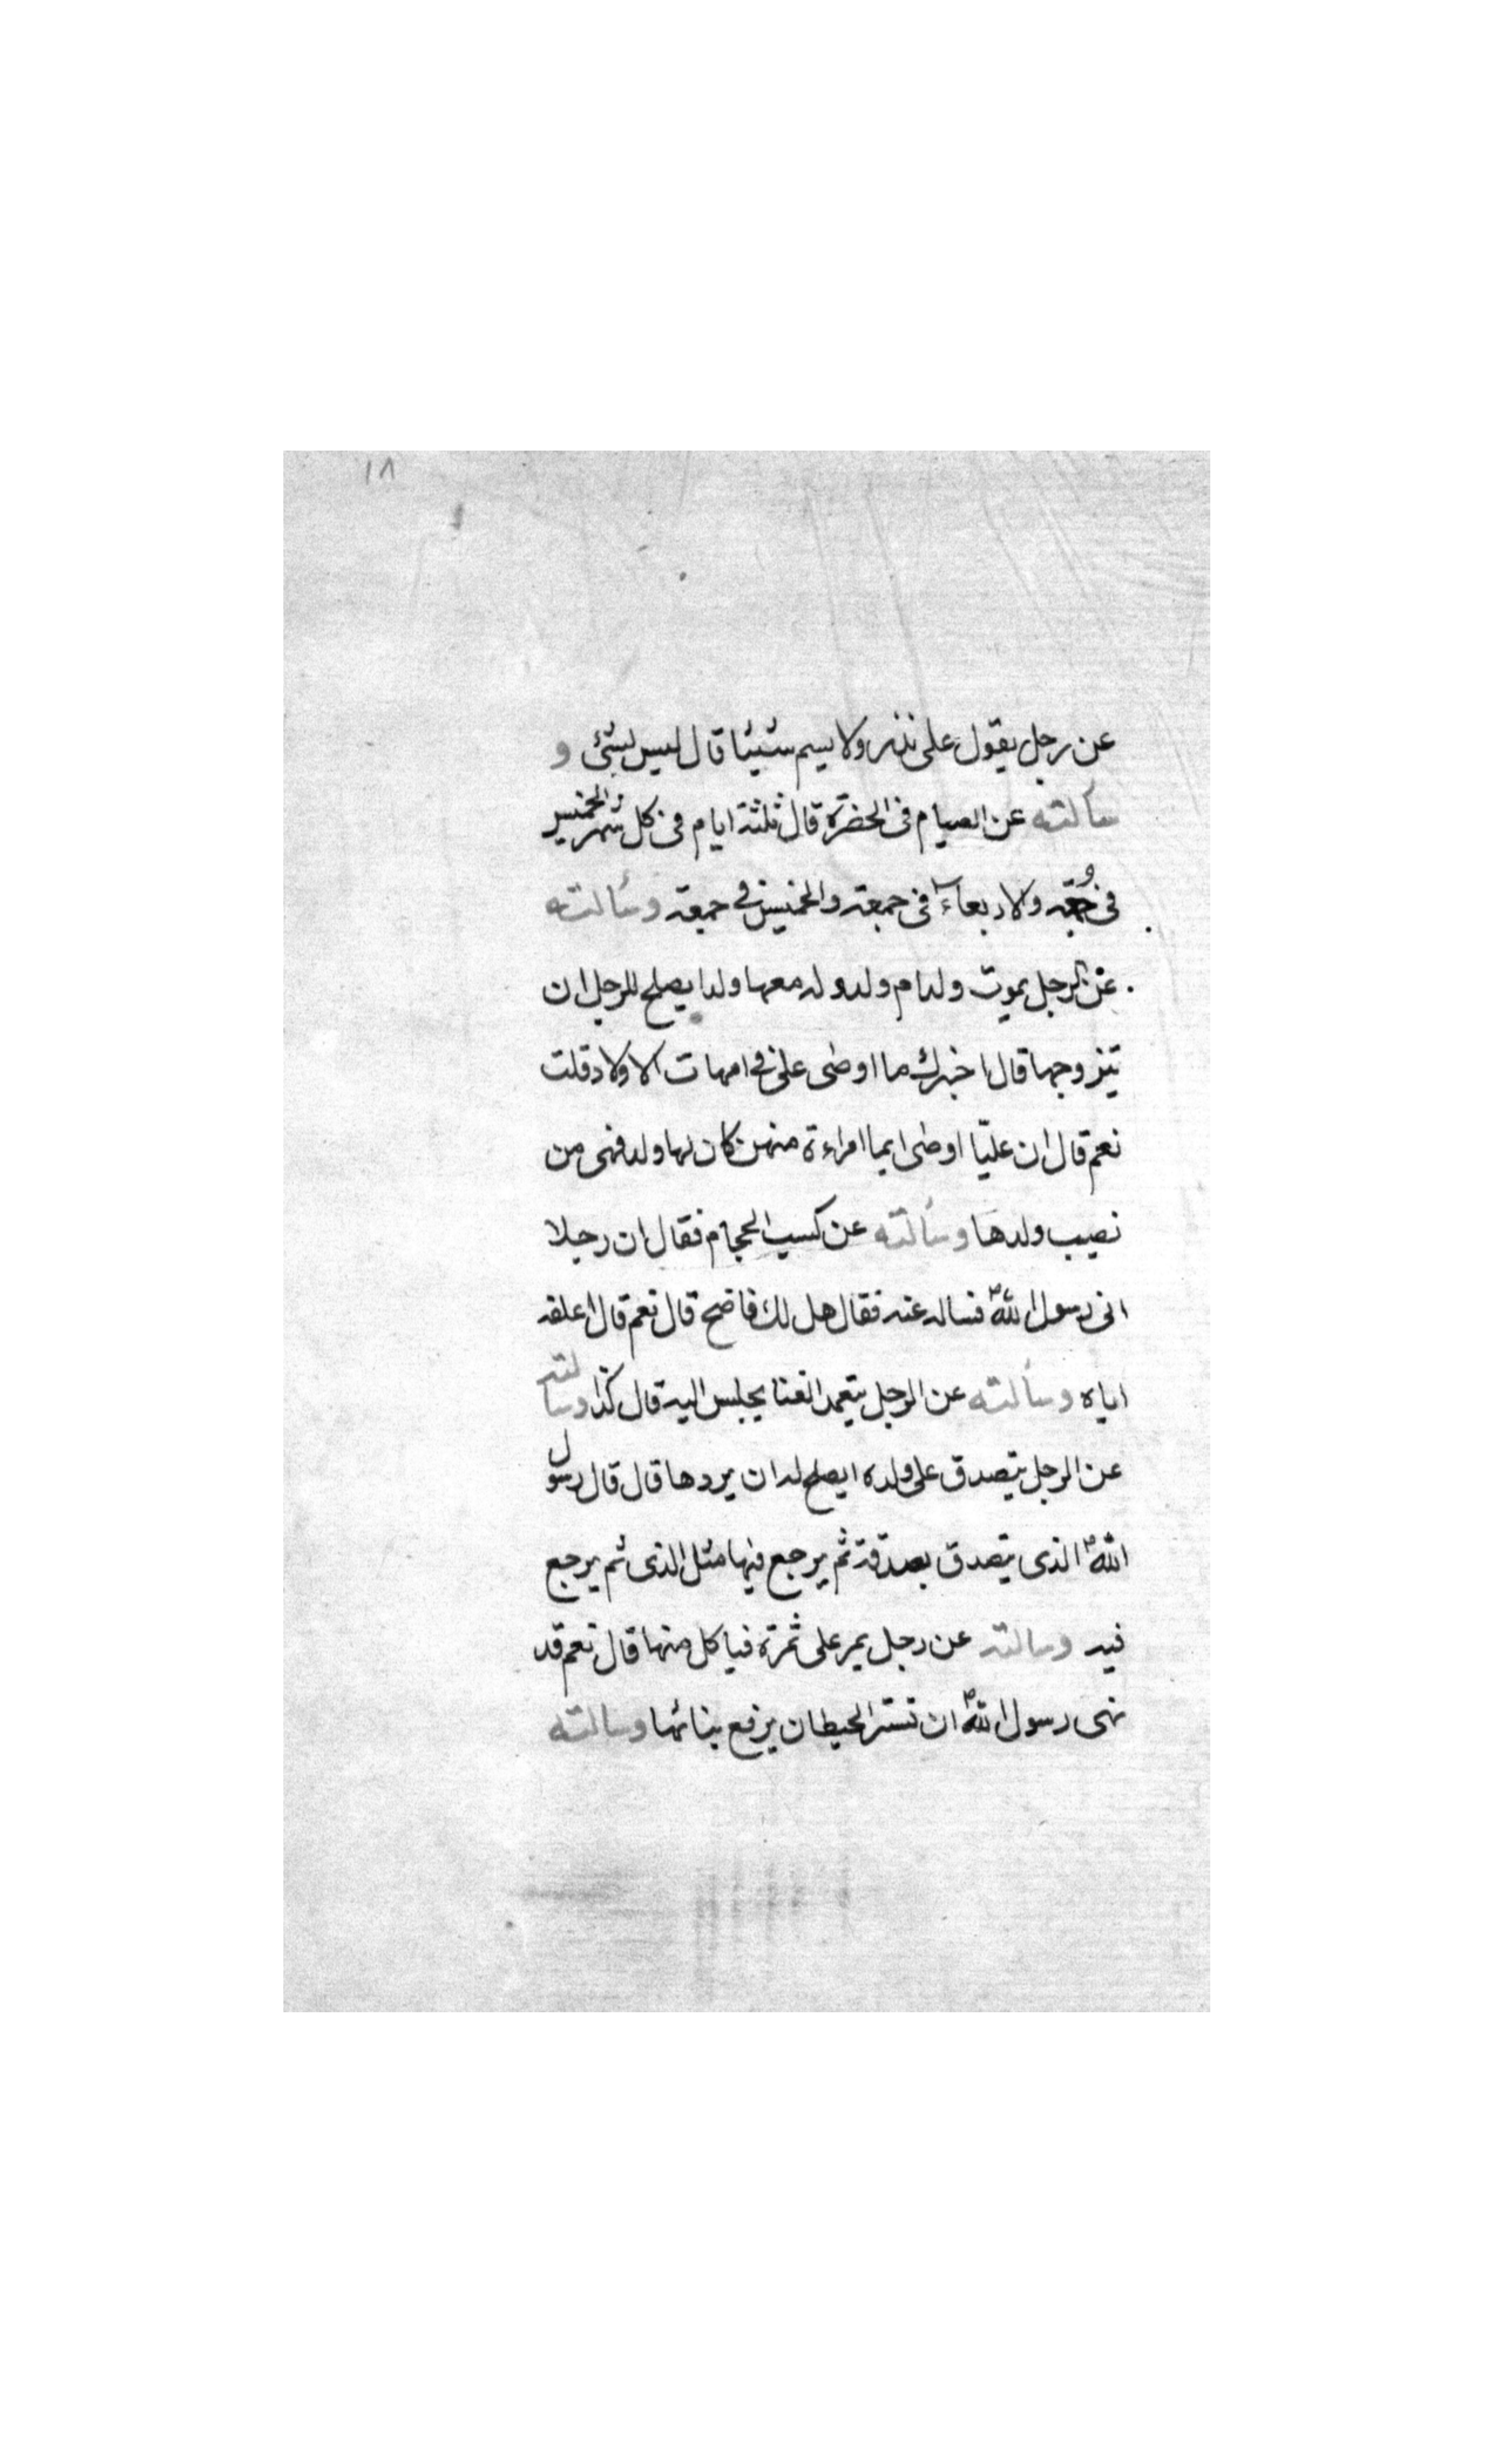 ١٨
عن رجل يقول على نذر ولا يسم شيئا قال ليس بشئ و
سألته عن الصيام فى الحضرة قال ثلثة ايام فى كل شهر الخميس
فى جمعة والاربعاء فى جمعة والخميس فى جمعة وسألته
عن الرجل يموت وله ام ولد وله معها ولد ايصلح للرجل ان
يتزوجها قال اخبرك ما اوصى على فى امهات الاولاد قلت
نعم قال ان عليّا اوصى ايما امراءة منهن كان لها ولد فهى من
نصيب ولدها وسألته عن كسب الحجام فقال ان رجلا
اتى رسول اللهص فساله عنه فقال هل لك ناضح قال نعم قال اعلفه
اياه وسألته عن الرجل يتعمد الغنا يجلس اليه قال لا وسالته
عن الرجل يتصدق على ولده ايصلح له ان يردها قال قال رسول
اللهص الذى يتصدق بصدقة ثم يرجع فيها مثل الذى ثم يرجع
فيه وسالته عن رجل يمر على ثمرة فياكل منها قال نعم قد
نهى رسول اللهص ان تستر الحيطان يرفع بنائها وسالته